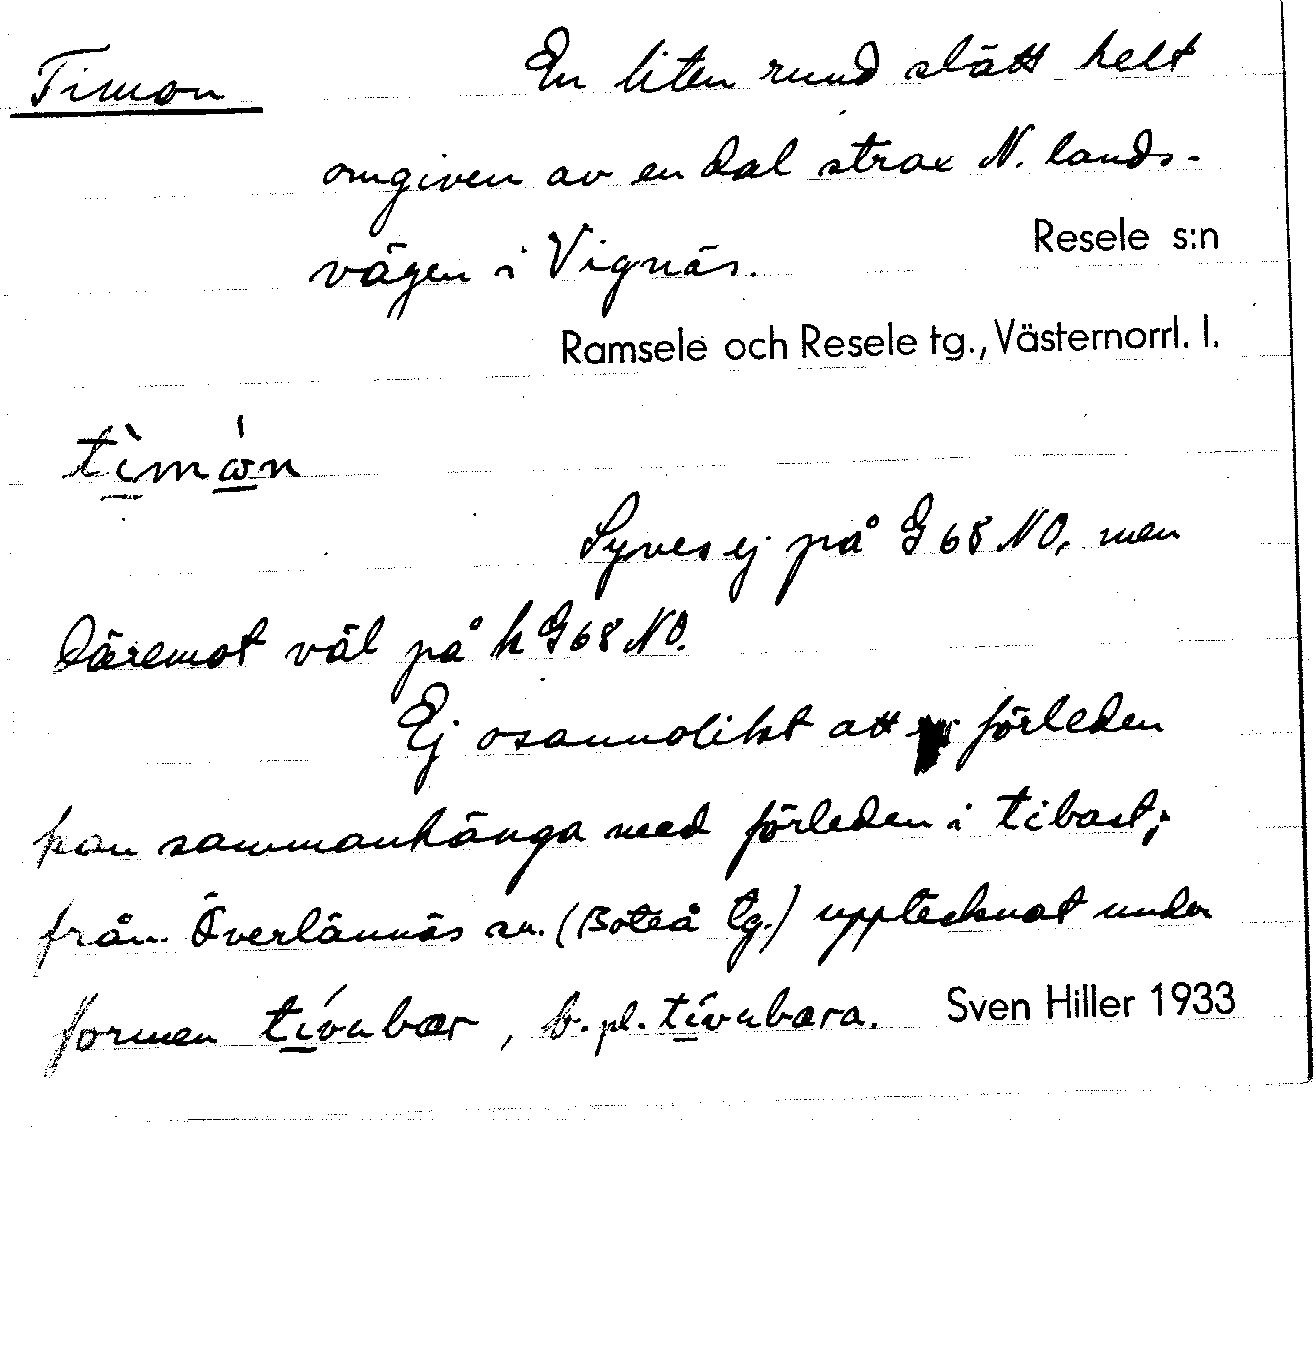 Timon En liten rund slätt helt
omgiven av en dal strax N. lands-
vägen i Vignäs.
Resele s:n
Ramsele och Resele tg., Västernorrl. l.
timån
Synes ej på G 68 NO, men
däremot väl på h G 68 NO.
Ej osannolikt att förleden
kan sammanhänga med förleden i tibast,
från Överlännäs sn. (Boteå tg.) upptecknat under
formen tívubær, b. pl. tívubæra.
Sven Hiller 1933